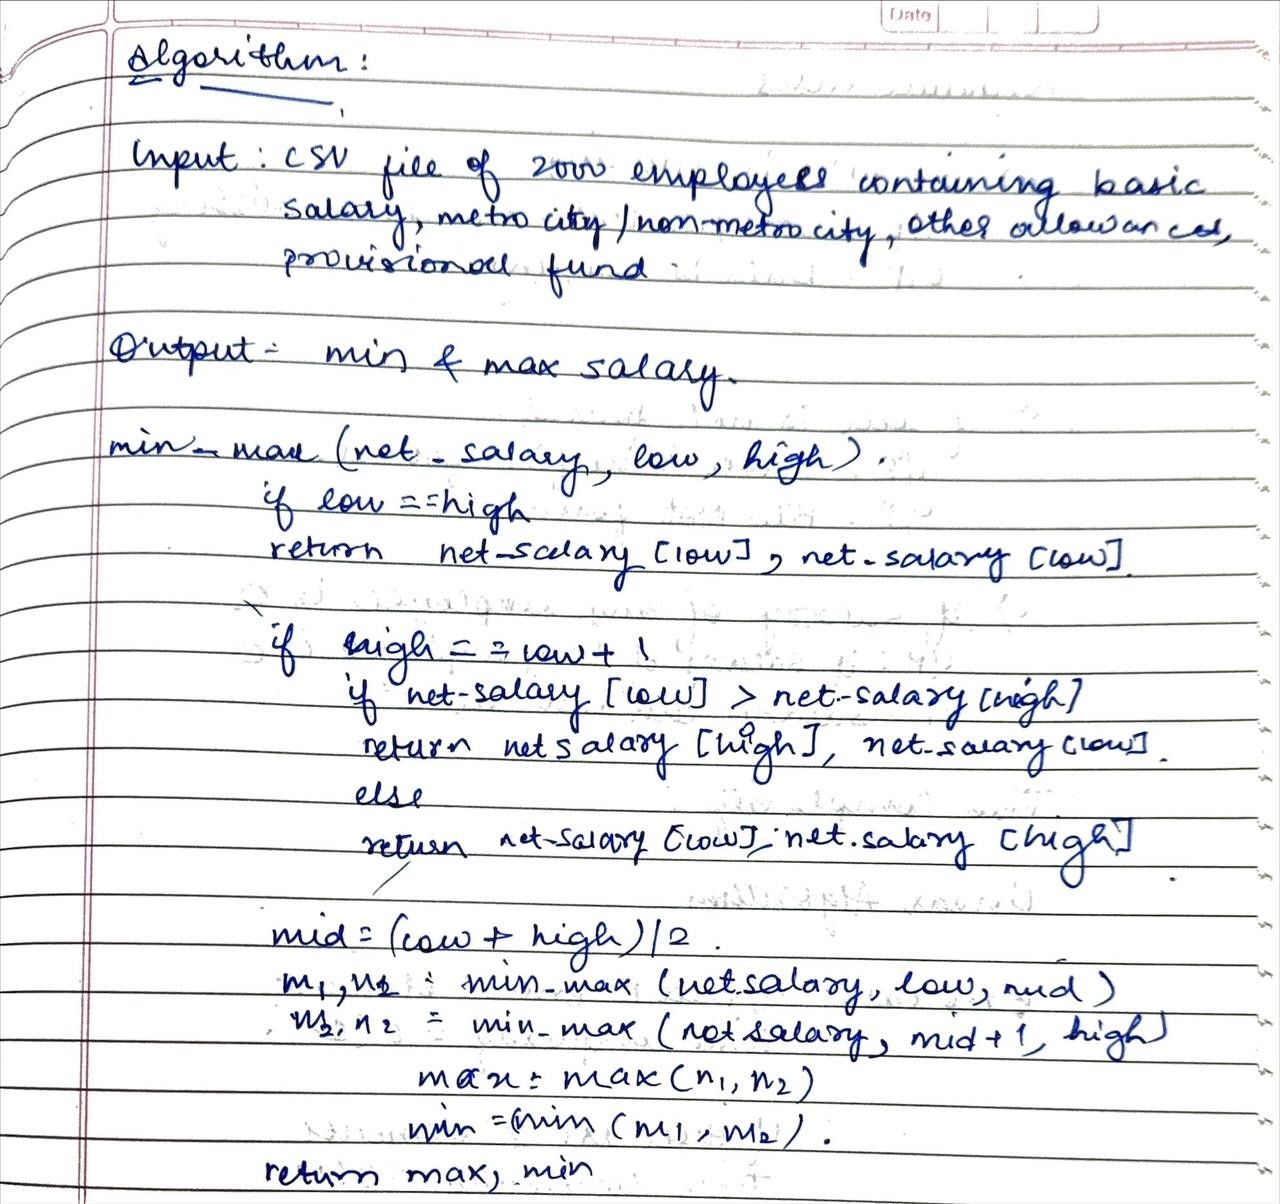 Date
Algorithm:
Input: CSV file of 2000 employees containing basic
salary, metro city / non-metro city, other allowances,
provisional fund
Output = min & max salary.
min_max (net_salary, low, high).
if low == high
return net_salary [low], net_salary [low]
if high == low + 1
if net-salary [low] > net-salary [high]
return net salary [high], net-salary [low].
else
return net-salary [low], net.salary [high]
mid = (low + high)/2.
m1, n2 = min-max (net salary, low, mid)
m2, n2 = min_max (net salary, mid+1, high)
max = max(n1, n2)
min = min (m1, m2).
return max, min